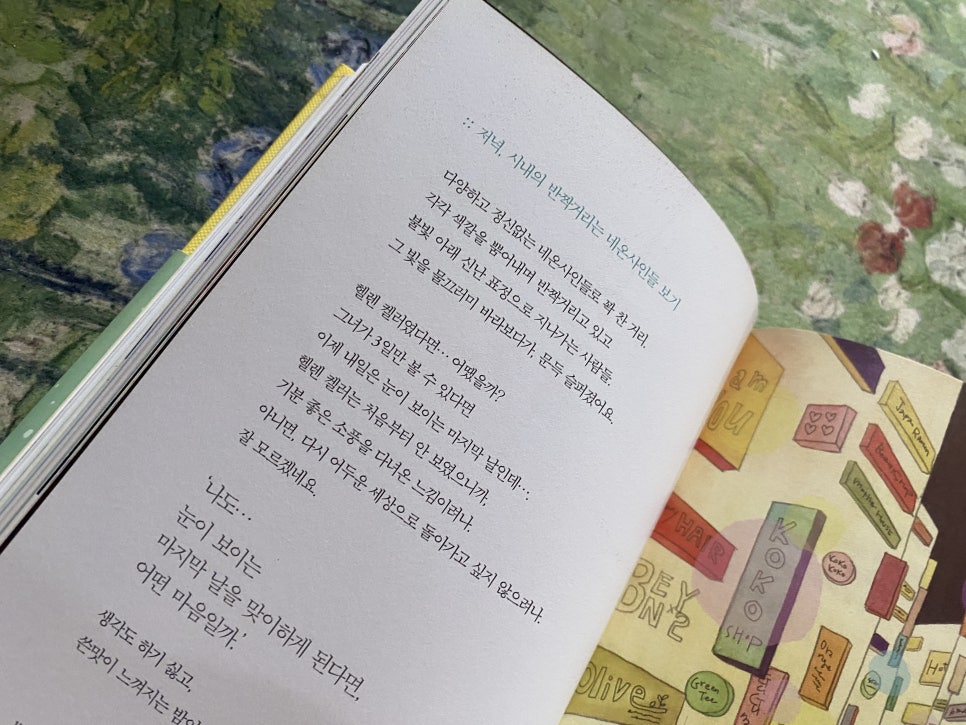 :: 저녁, 시내의 반짝거리는 네온사인들 보기
다양하고 정신없는 네온사인들로 꽉 찬 거리.
각각 색깔을 뿜어내며 반짝거리고 있고
불빛 아래 신난 표정으로 지나가는 사람들.
그 빛을 물끄러미 바라보다가, 문득 슬퍼졌어요.
헬렌 켈러였다면… 어땠을까?
그녀가 3일만 볼 수 있다면
이제 내일은 눈이 보이는 마지막 날인데…,
헬렌 켈러는 처음부터 안 보였으니까,
기분 좋은 소풍을 다녀온 느낌이려나.
아니면, 다시 어두운 세상으로 돌아가고 싶지 않으려나.
잘 모르겠네요.
'나도…
눈이 보이는
마지막 날을 맞이하게 된다면,
어떤 마음일까.'
생각도 하기 싫고,
쓴맛이 느껴지는
am
NU
Japan Ramen
HAIR
KOKO
SHOP
KOKO
KOKO
BEY
ON2
Olive
Green
Tee
Hot